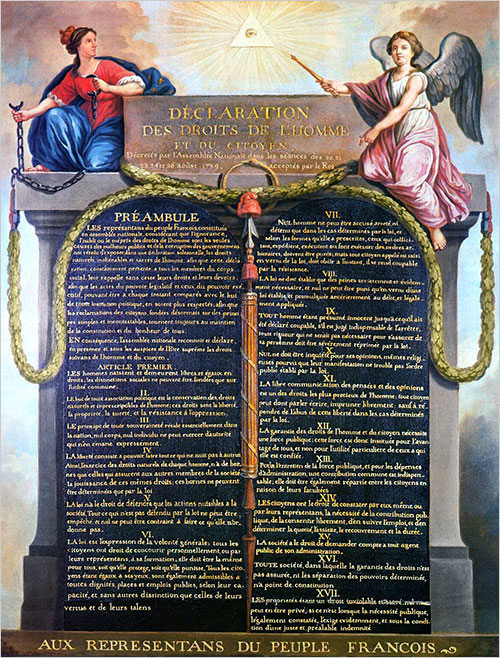 DÉCLARATION
DES DROITS DE L'HOMME
ET DU CITOYEN,
Décrétés par l'Assemblée Nationale dans les séances des 20, 21
23, 24 et 26 août 1789, acceptés par le Roi
PRÉAMBULE
LES représentans du peuple François, constitués
en assemblée nationale, considérant que l'ignorance,
l'oubli ou le mépris des droits de l'homme sont les seules
causes des malheurs publics et de la corruption des gouvernemens
ont résolu d'exposer dans une déclaration solemnelle, les droits
naturels, inaliénables et sacrés de l'homme; afin que cette décla
ration, constamment présente à tous les membres du corps
social, leur rappelle sans cesse leurs droits et leurs devoirs;
afin que les actes du pouvoir législatif et ceux du pouvoir exé
cutif, pouvant être à chaque instant comparés avec le but
de toute institution politique, en soient plus respectés; afin que
les réclamations des citoyens, fondées désormais sur des princi
pes simples et incontestables, tournent toujours au maintien
de la constitution et du bonheur de tous.
EN conséquence, l'assemblée nationale reconnoit et déclare,
en présence et sous les auspices de l'Etre suprême les droits
suivans de l'homme et du citoyen.
ARTICLE PREMIER.
LES hommes naissent et demeurent libres et égaux en
droits; les distinctions sociales ne peuvent être fondées que sur
l'utilité commune.
II.
LE but de toute association politique est la conservation des droits
naturels et imprescriptibles de l'homme; ces droits sont la liberté,
la propriété, la sureté, et la résistance à l'oppression.
III.
LE principe de toute souveraineté réside essentiellement dans
la nation, nul corps, nul individu ne peut exercer d'autorité
qui n'en émane expressément.
IV.
LA liberté consiste à pouvoir faire tout ce qui ne nuit pas à autrui
Ainsi, l'exercice des droits naturels de chaque homme, n'a de bor
nes que celles qui assurent aux autres membres de la société
la jouissance de ces mêmes droits; ces bornes ne peuvent
être déterminées que par la loi
V.
LA loi n'a le droit de défendre que les actions nuisibles à la
société. Tout ce qui n'est pas défendu par la loi ne peut être
empêché, et nul ne peut être contraint à faire ce qu'elle n'or
donne pas.
VI.
LA loi est l'expression de la volonté générale; tous les
citoyens ont droit de concourir personnellement, ou par
leurs représentans, à sa formation; elle doit être la même
pour tous, soit qu'elle protege, soit qu'elle punisse. Tous les cito
yens étant égaux à ses yeux, sont également admissibles à
toutes dignités, places et emplois publics, selon leur ca
pacité, et sans autres distinction que celles de leurs
vertus et de leurs talens
VII.
NUL homme ne peut être accusé, arreté, ni
détenu que dans les cas déterminés par la loi, et
selon les formes qu'elle a prescrites, ceux qui sollici
tent, expédient, exécutent ou font exécuter des ordres ar
bitraires, doivent être punis; mais tout citoyen appelé ou saisi
en vertu de la loi, doit obéir à l'instant, il se rend coupable
par la résistance.
VIII.
LA loi ne doit établir que des peines strictement et évidem
ment nécessaire, et nul ne peut être puni qu'en vertu d'une
loi établie et promulguée antérieurement au délit, et légale
ment appliquée.
IX.
TOUT homme étant présumé innocent jusqu'à ce qu'il ait
été déclaré coupable, s'il est jugé indispensable de l'arrêter,
toute rigueur qui ne serait pas nécessaire pour s'assurer de
sa personne doit être sévèrement réprimée par la loi.
X.
NUL ne doit être inquiété pour ses opinions, mêmes religi
euses pourvu que leur manifestation ne trouble pas l'ordre
public établi par la loi.
XI.
LA libre communication des pensées et des opinions
est un des droits les plus précieux de l'homme; tout citoyen
peut donc parler, écrire, imprimer librement; sauf à ré
pondre de l'abus de cette liberté dans les cas déterminés
par la loi.
XII.
LA garantie des droits de l'homme et du citoyen nécessite
une force publique; cette force est donc instituée pour l'avan
tage de tous, et non pour l'utilité particuliere de ceux a qui
elle est confiée.
XIII.
POUR l'entretien de la force publique, et pour les dépenses
d'administration, une contribution commune est indispen
sable; elle doit être également répartie entre les citoyens en
raison de leurs facultés
XIV.
LES citoyens ont le droit de constater par eux même ou
par leurs représentans, la nécessité de la contribution pub
lique, de la consentir librement, d'en suivre l'emploi, et d'en
déterminer la quotité, l'assiette, le recouvrement et la durée.
XV.
LA société a le droit de demander compte a tout agent
public de son administration.
XVI.
TOUTE société, dans laquelle la garantie des droits n'est
pas assurée, ni la séparation des pouvoirs déterminée,
n'a point de constitution
XVII.
LES propriétés étant un droit inviolable et sacré, nul ne
peut en être privé, si ce n'est lorsque la nécessité publique,
légalement constatée, l'exige évidemment, et sous la condi
tion d'une juste et préalable indemnité
AUX REPRESENTANS DU PEUPLE FRANCOIS